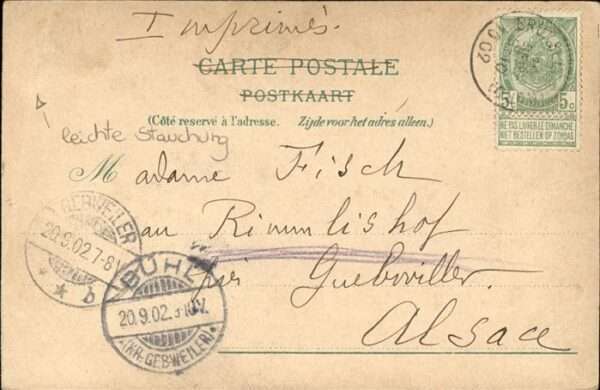 Imprimés.
CARTE POSTALE
POSTKAART
(Côté reservé à l'adresse. Zijde voor het adres alleen.)
leichte Stauchung
5 5c
NE PAS LIVRER LE DIMANCHE
NIET BESTELLEN OP ZONDAG
Madame Fisch
au Rimmlishof
près Guebwiller.
Alsace
GEBWEILER
20.9.02.7-8V.
* * b
BÜHL
20.9.02.
(KR. GEBWEILER)